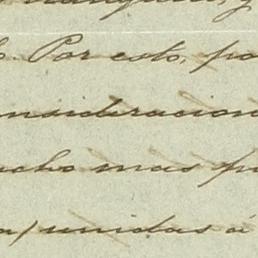 Por esto, po
nsideracion
ucho mas p
unidas á